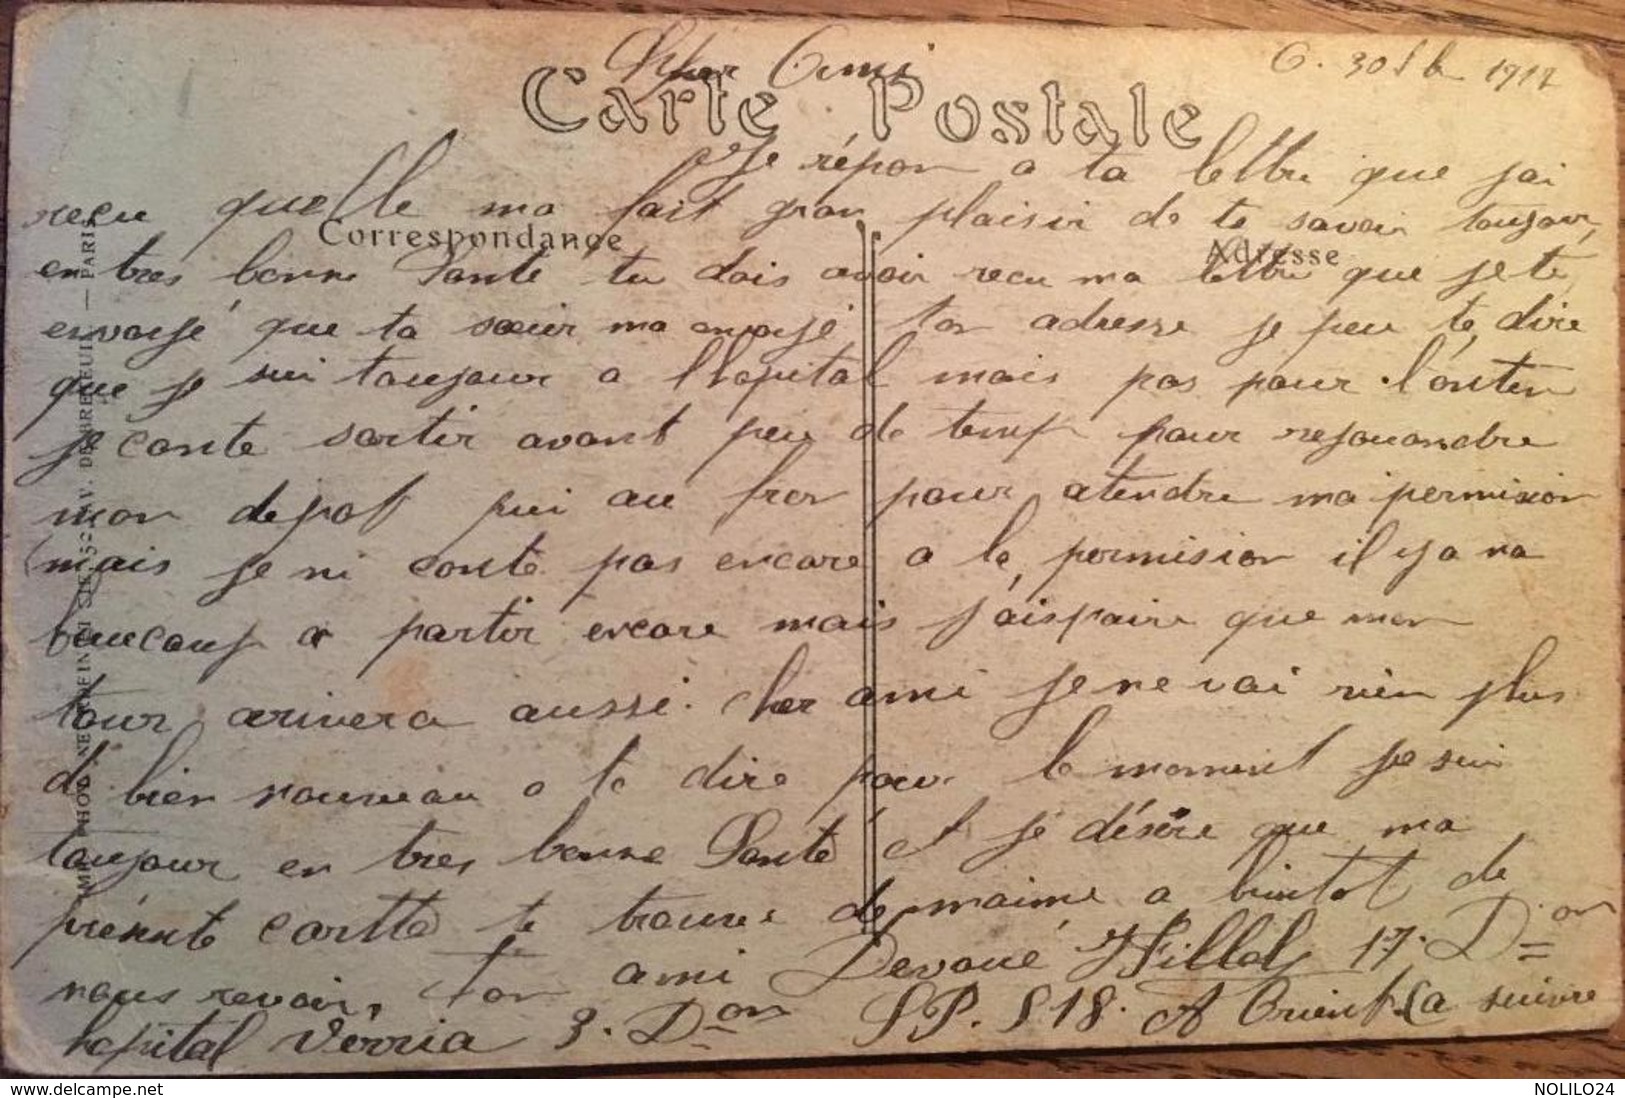 Cher Ami
1917
Carte Postale
Je répon a ta lettre que jai
recu quelle ma fait gran plaisir de te savoir toujour
Correspondance
Adresse
en tres bonne Santé tu dois avoir recu ma lettre que je té
envoyé que ta sœur ma envoyé ton adresse je peu te dire
que je sui toujour a l'hopital mais pas pour lonten
je conte sortir avant peu de temp pour rejouandre
mon depot pui au fron pour atendre ma permision
mais je ni conte pas encore a la permision il y a na
baucoup a partir encore mais j'aispaire que mon
tour arivera aussi. Cher ami je ne vai rien plus
de bien nouveau a te dire pour le moment je sui
toujour en tres bonne Santé et je désire que ma
présente cartte te trouve de maime a bientot de
nous revoir, Ton ami Devoué 17. Don
hopital Verria 3. Don SP. 518. A Orient a suivre
IMP. PHOT. NEURDEIN ET CIE. 52, AV. DE BRETEUIL — PARIS
www.delcampe.net
NOLILO24